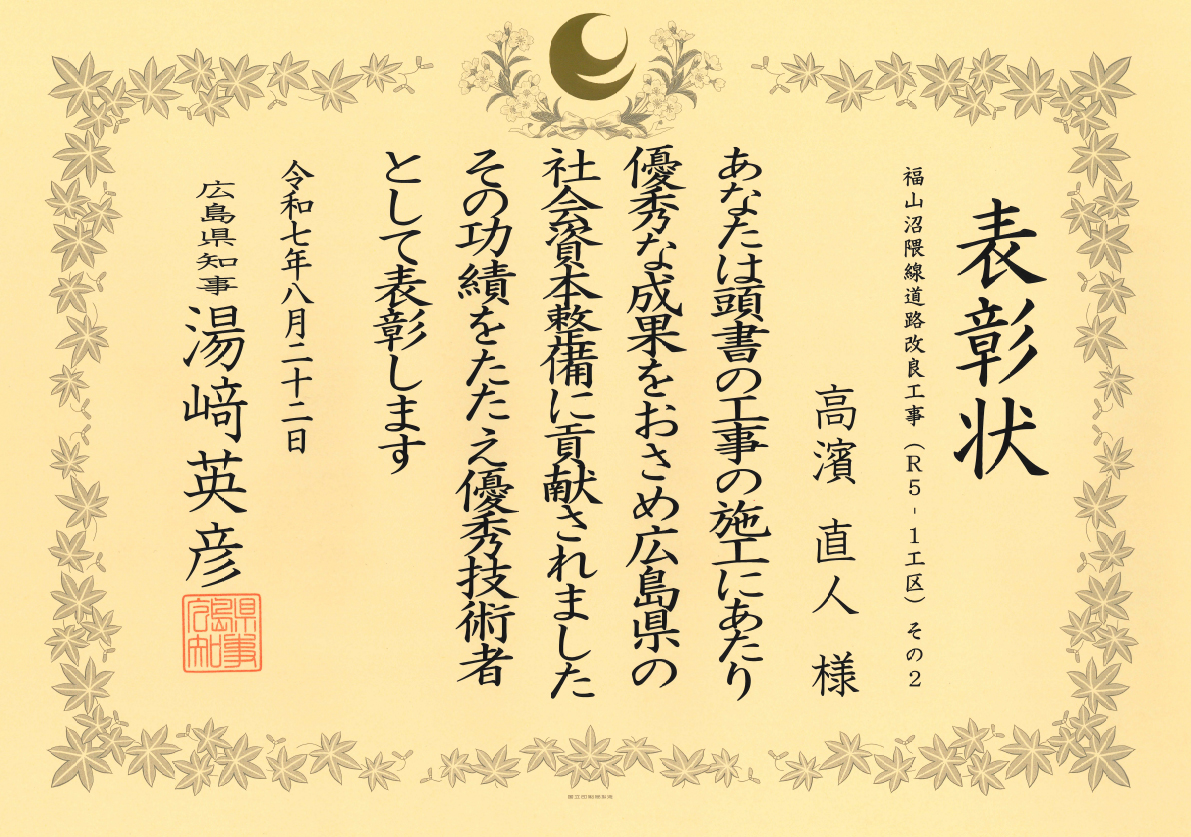 表彰状
福山沼隈線道路改良工事（R5-1工区）その2
高濱 直人 様
あなたは頭書の工事の施工にあたり
優秀な成果をおさめ広島県の
社会資本整備に貢献されました
その功績をたたえ優秀技術者
として表彰します
令和七年八月二十二日
広島県知事 湯﨑英彦
広島県知事